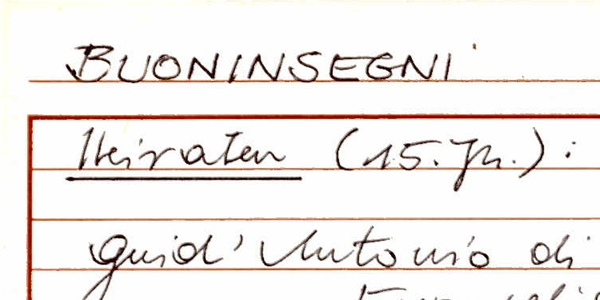 BUONINSEGNI
Heiraten (15. Jh.):
Guid'Antonio di